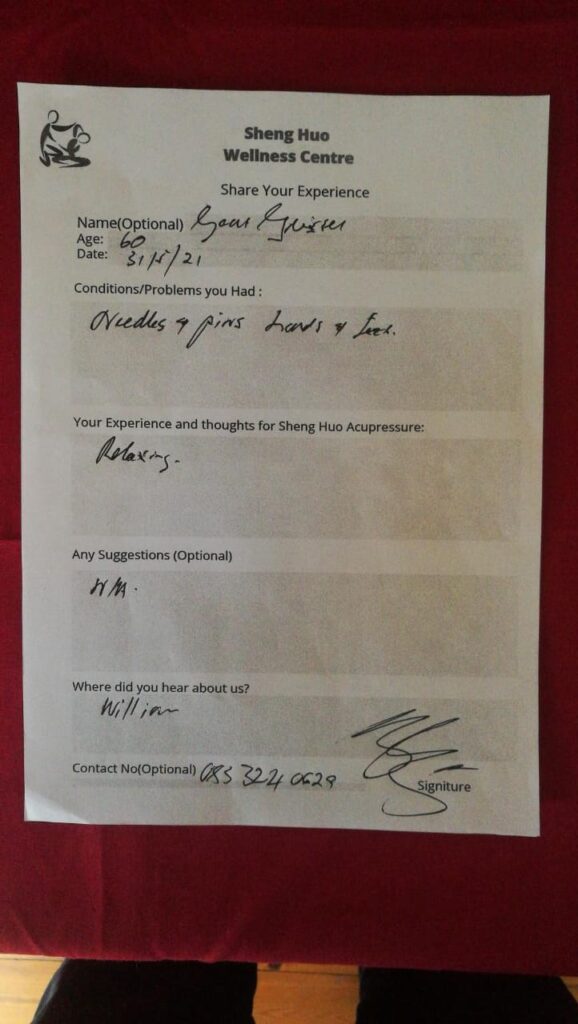 Sheng Huo
Wellness Centre
Share Your Experience
Name(Optional)
Age: 60
Date: 31/5/21
Conditions/Problems you Had :
Needles & pins hands & feet.
Your Experience and thoughts for Sheng Huo Acupressure:
Relaxing.
Any Suggestions (Optional)
N/A.
Where did you hear about us?
William
Contact No(Optional) 083 324 0629
Signiture